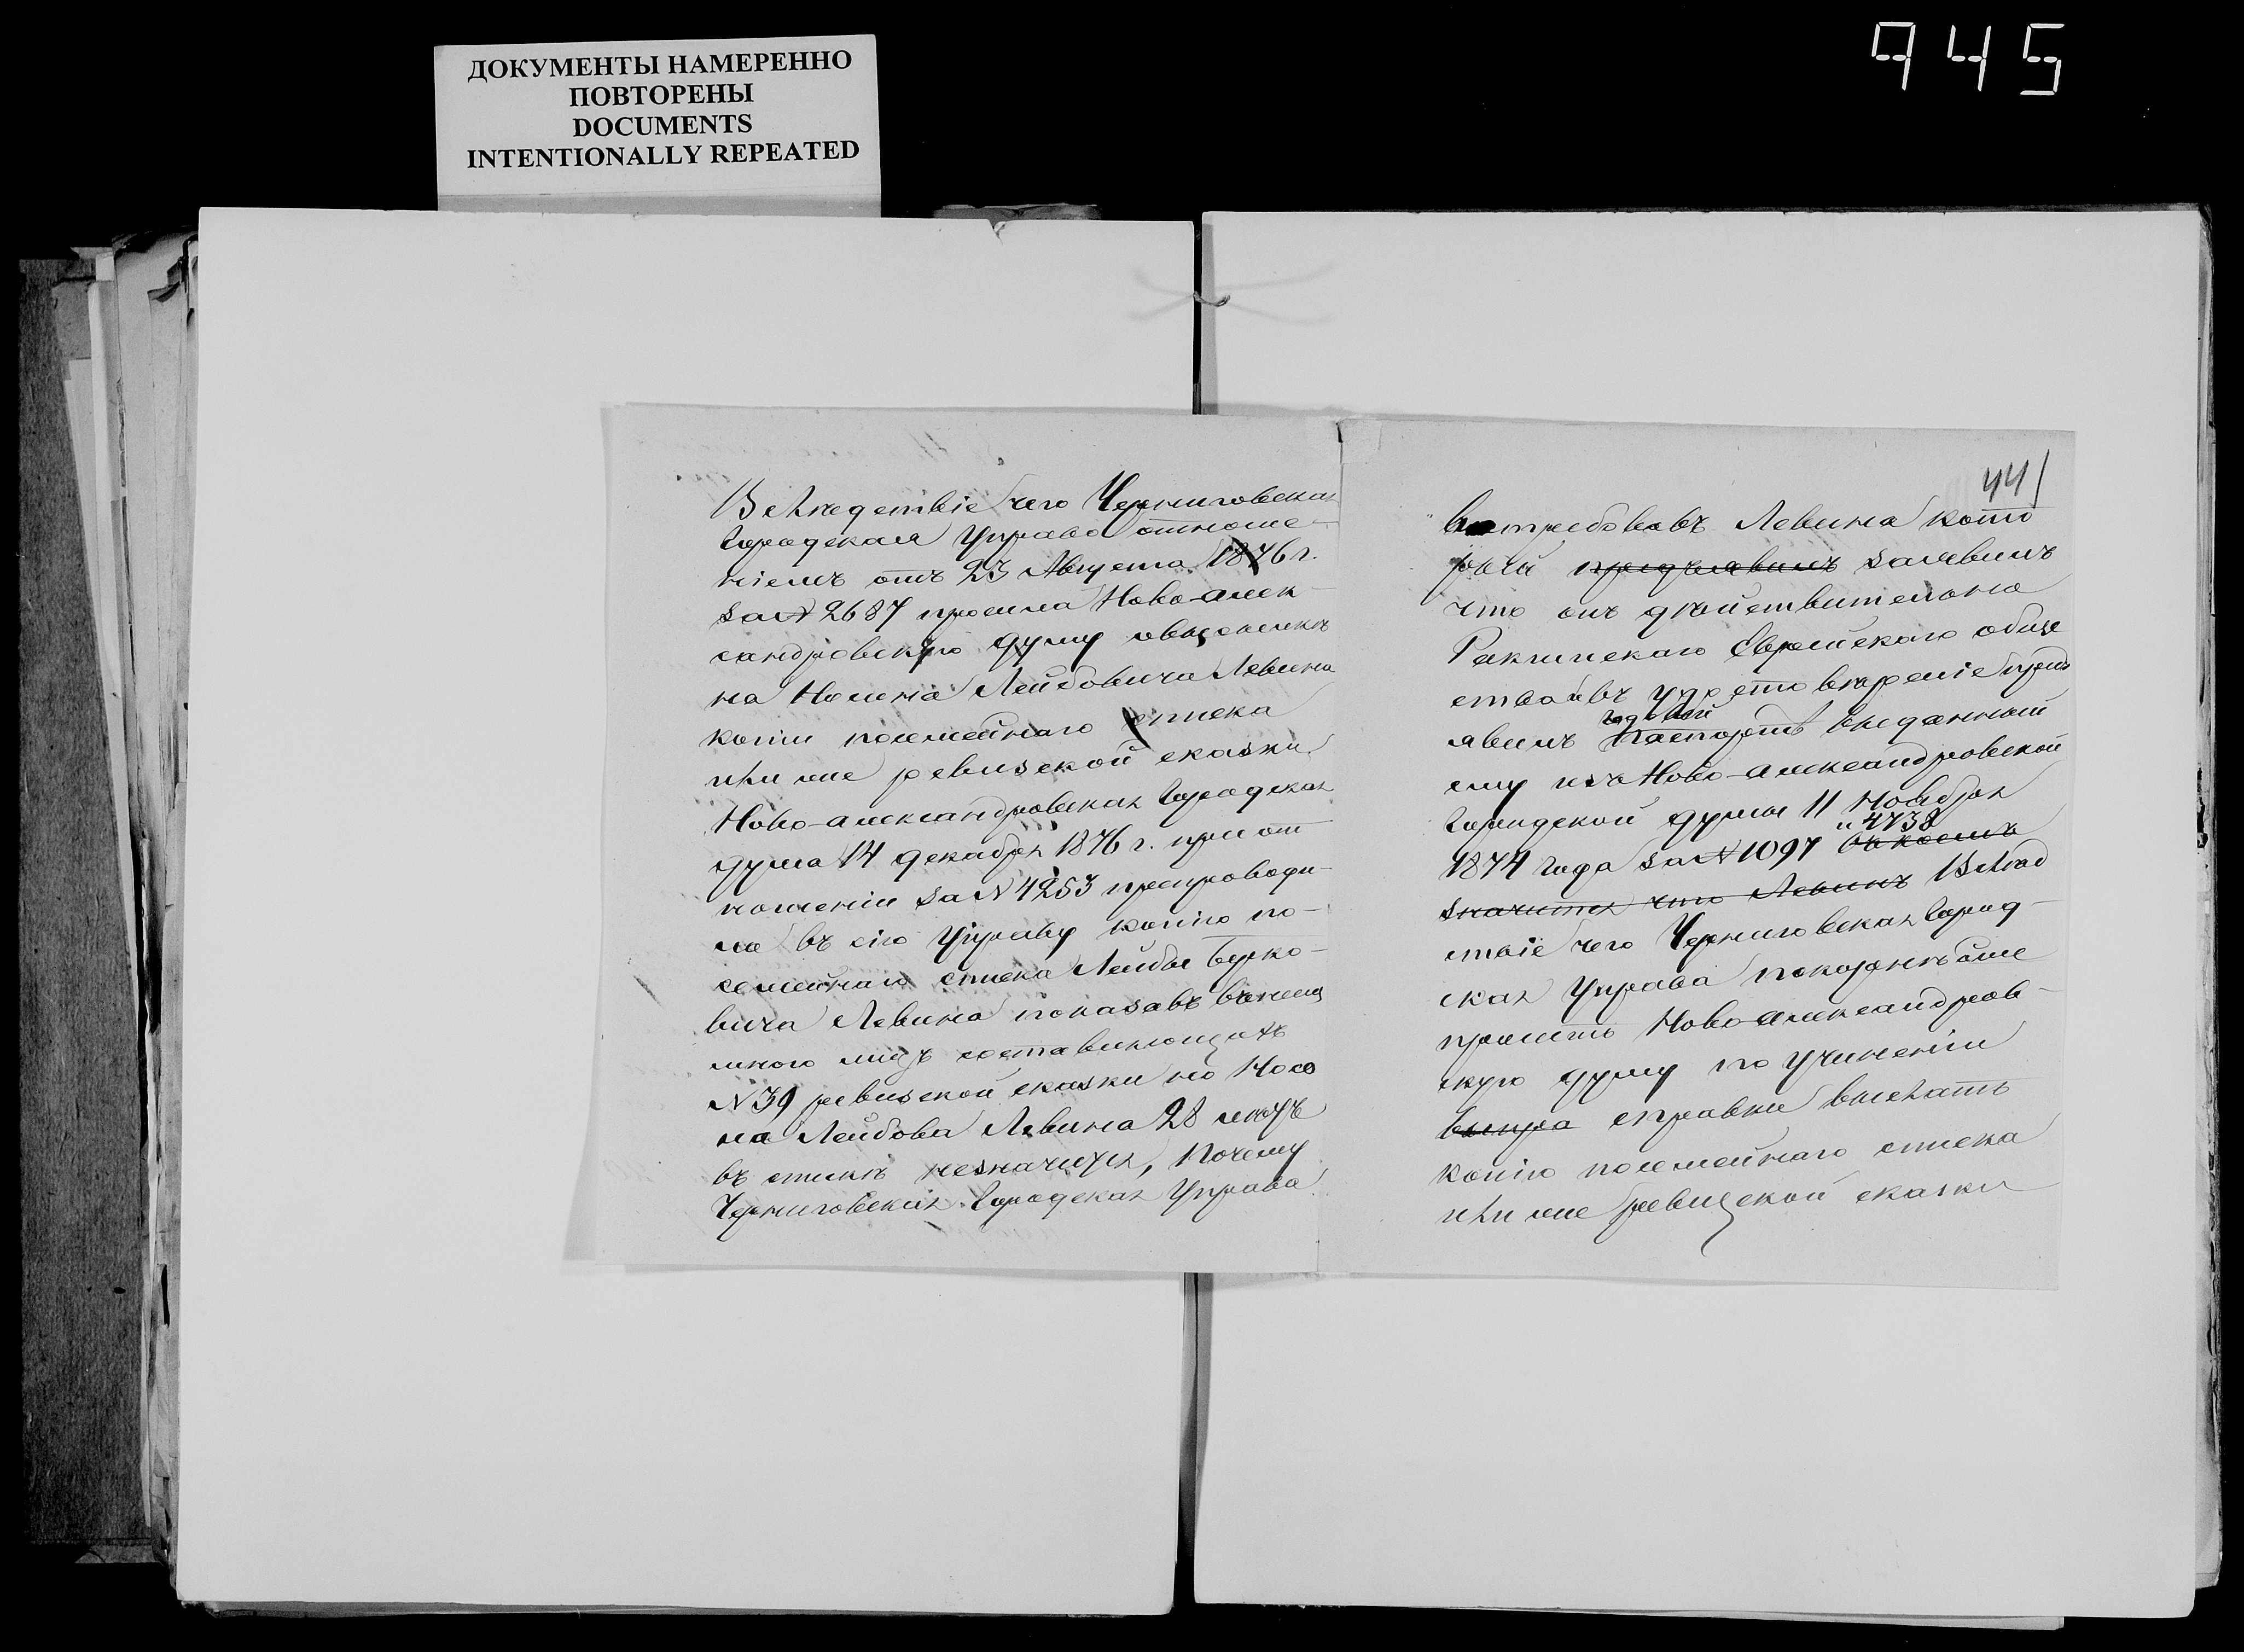 ДОКУМЕНТЫ НАМЕРЕННО
ПОВТОРЕНЫ
DOCUMENTS
INTENTIONALLY REPEATED
945
Вследствіе чего Черниговская
Городская Управа отноше-
ніемъ отъ 23 Августа 1876 г.
за № 2687 просила Ново-алек-
сандровскую думу о высылкѣ
на Носина Лейбовича Левина
копіи посемейнаго списка
или же ревизской сказки
Ново-александровская Городская
дума 14 декабря 1876 г. при от
ношеніи за № 4253 препроводи-
ла въ сію Управу копію по-
семейнаго списка Лейбы Берко-
вича Левина показавъ въ немъ
много лицъ составляющихъ
№ 39 ревизской сказки но Носо
на Лейбова Левина 28 лѣтъ
въ спискѣ незначится, Почему
Черниговская Городская Управа
441
вытребовавъ Левина кото
рый предъявилъ заявилъ
что онъ дѣйствительно
Ракишскаго Еврейскаго обще
ства и въ удостовѣреніе предъ
годовой
явилъ паспортъ выданный
ему изъ Ново-александровской
Городской думы 11 Ноября
и 4738
1874 года за № 1097 въ коемъ
значится что Левинъ Вслѣд
ствіе чего Черниговская Город-
ская Управа покорнѣйше
проситъ Ново-александров-
скую думу по учиненіи
справки выслать
копію посемейнаго списка
или же ревизской сказки